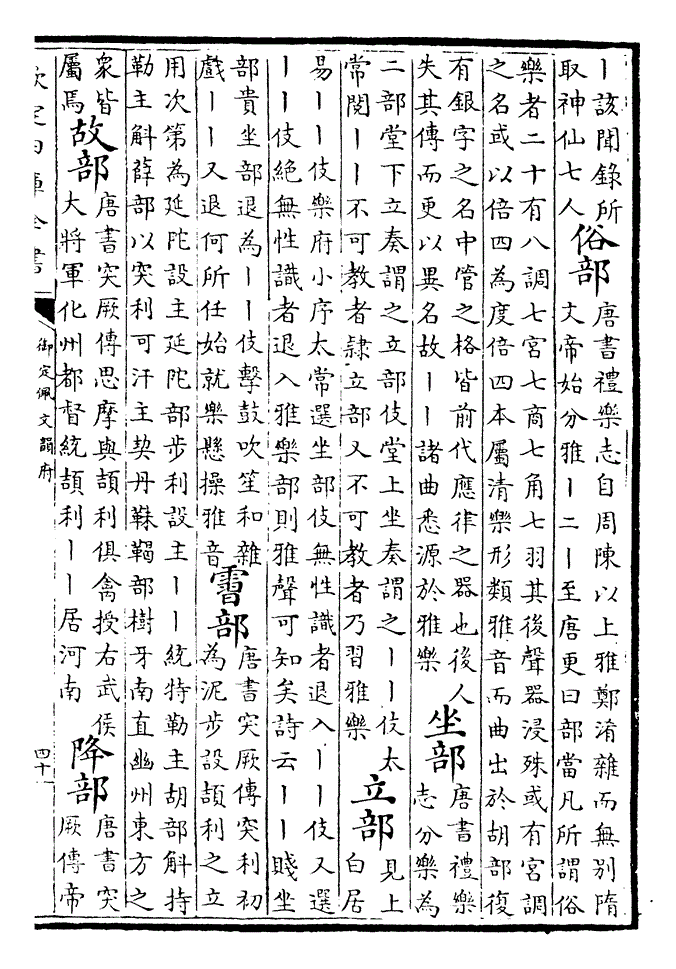 丨該聞錄所
取神仙七人
俗部
唐書禮樂志自周陳以上雅鄭淆雜而無別隋
文帝始分雅丨二丨至唐更曰部當凡所謂俗
樂者二十有八調七宮七商七角七羽其後聲器浸殊或有宮調
之名或以倍四為度倍四本屬清樂形類雅音而曲出於胡部復
有銀字之名中管之格皆前代應律之器也後人
失其傳而更以異名故丨丨諸曲悉源於雅樂
坐部
唐書禮樂
志分樂為
二部堂下立奏謂之立部伎堂上坐奏謂之丨丨伎太
常閱丨丨不可教者隸立部又不可教者乃習雅樂
立部
見上
白居
易丨丨伎樂府小序太常選坐部伎無性識者退入丨丨伎又選
丨丨伎絶無性識者退入雅樂部則雅聲可知矣詩云丨丨賤坐
部貴坐部退為丨丨伎擊鼓吹笙和雜
戲丨丨又退何所任始就樂懸操雅音
霫部
唐書突厥傳突利初
為泥步設頡利之立
用次第為延陀設主延陀部步利設主丨丨統特勒主胡部斛持
勒主斛薛部以突利可汗主契丹靺鞨部樹牙南直幽州東方之
衆皆
屬焉
故部
唐書突厥傳思摩與頡利俱禽授右武侯
大將軍化州都督統頡利丨丨居河南
降部
唐書突
厥傳帝
欽定四庫全書
御定佩文韻府
四十